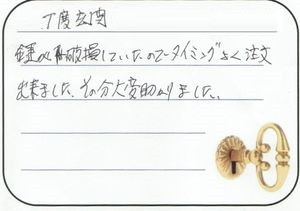 丁度玄関
鍵が破損していたのでタイミングよく注文
出来ました。その分大変助かりました。